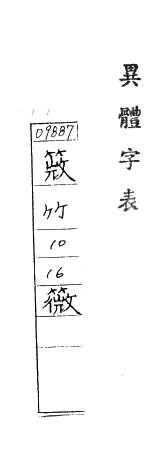 異體字表
09887
𥳑
竹
10
16
薇